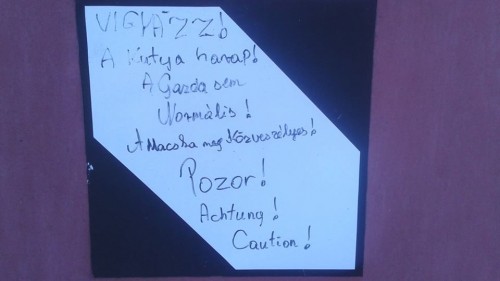 VIGYÁZZ!
A Kutya harap!
A Gazda sem
Normális!
A Macska meg Közveszélyes!
Pozor!
Achtung!
Caution!